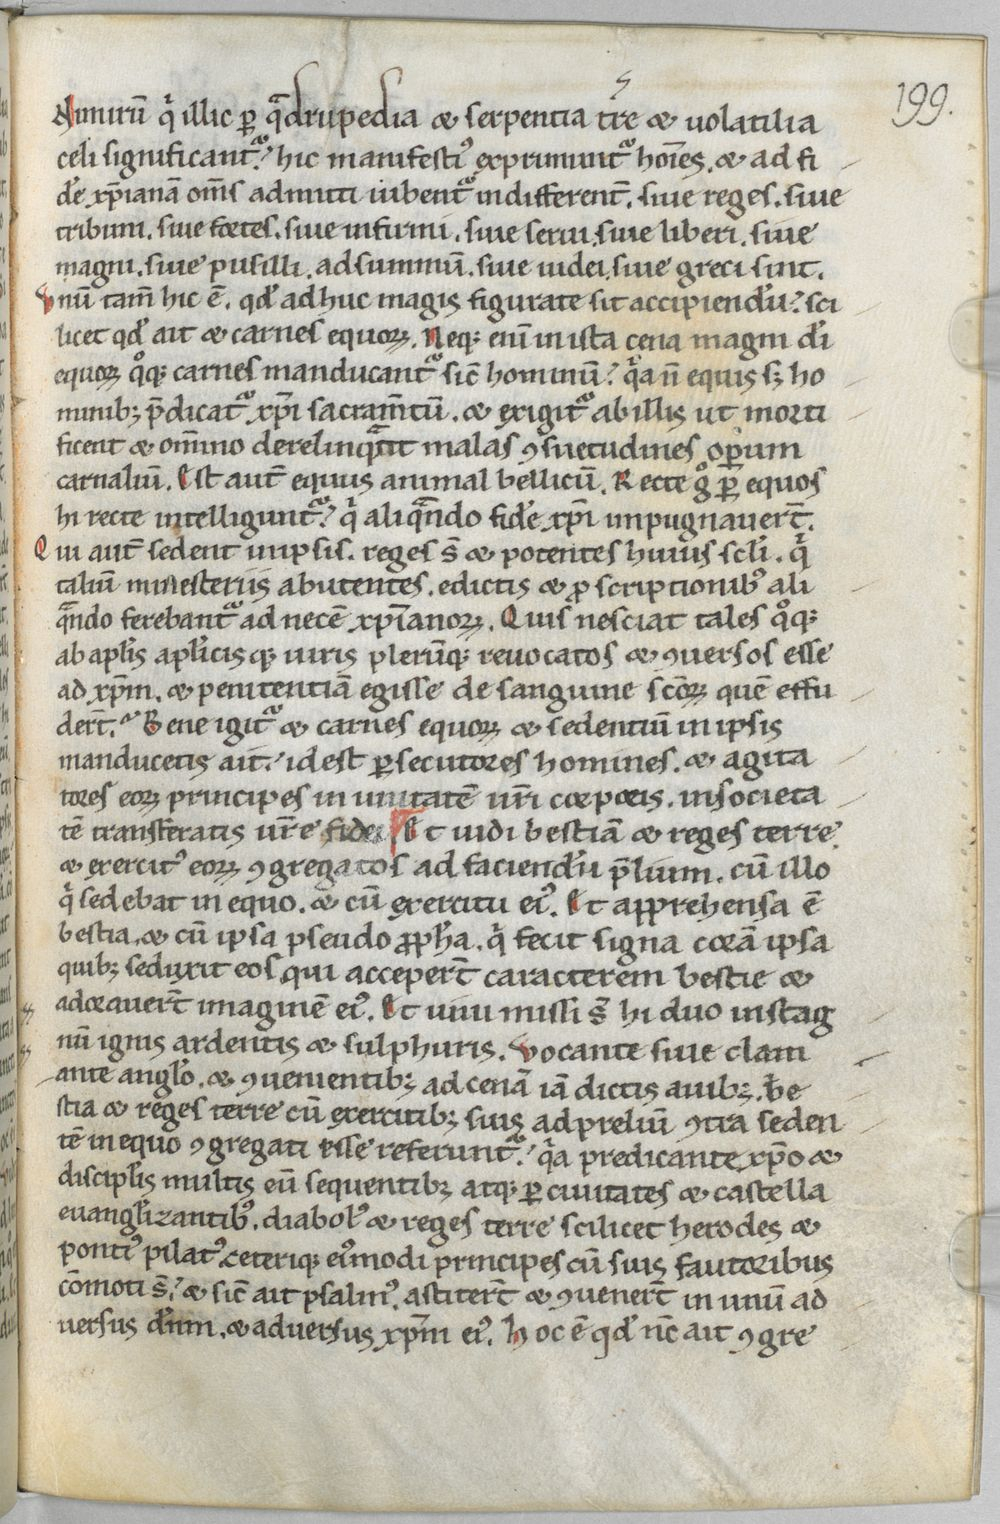 199.
Nimirū q̄ illic ꝑ q̄drupedia ⁊ serpentia tr̄e ⁊ uolatilia
celi significant᷑. hic manifesti᷒ exprimunt᷑ hoīes. ⁊ ad fi
dē xp̄ianā om̄s admitti iubent᷑ indifferent̄. siue reges. siue
tribuni. siue fortes. siue infirmi. siue serui. siue liberi. siue
magni. siue pusilli. ad summū. siue iudei. siue greci sint.
Vnū tam̄ hic ē. qđ adhuc magis figurate sit accipiendū. sci
licet qđ ait ⁊ carnes equoꝝ. Neqꝫ enī in ista cena magni di
equoꝝ q̊qꝫ carnes manducant᷑ sic̄ hominū. q̄a n̄ equis sꝫ ho
minibꝫ p̄dicat᷑ xp̄i sacram̄tū. ⁊ exigit᷑ ab illis ut morti
ficent ⁊ om̄ino derelinquāt malas ꝯsuetudines operum
carnaliū. Est aut̄ equus animal bellicū. Recte g̊ ꝑ equos
hi recte intelligunt᷑. q̄ aliq̄ndo fidē xp̄i impugnauer̄t.
Qui aut̄ sedent in ipsis. reges s̄ ⁊ potentes huius scl̄i. q̄
taliū ministeriis abutentes. edictis ⁊ ꝓscriptionib᷒ ali
q̄ndo ferebant᷑ ad necē xp̄ianoꝝ. Quis nesciat tales q̊qꝫ
ab apl̄is apl̄icisqꝫ uiris plerūqꝫ reuocatos ⁊ ꝯuersos esse
ad xp̄m. ⁊ penitentiā egisse de sanguine sc̄oꝝ quē effu
der̄t. Bene igit᷑ ⁊ carnes equoꝝ ⁊ sedentiū in ipsis
manducetis ait. id est ꝑsecutores homines. ⁊ agita
tores eoꝝ principes in unitatē ur̄i corporis. in societa
tē transferatis ur̄e fidei. Et uidi bestiā ⁊ reges terre.
⁊ exercit᷒ eoꝝ ꝯgregatos ad faciendū p̄lium. cū illo
q̄ sedebat in equo. ⁊ cū exercitu ei᷒. Et apprehensa ē
bestia. ⁊ cū ipsa pseudo ꝓph̄a. q̄ fecit signa corā ipsa
quibꝫ seduxit eos qui acceper̄t caracterem bestie ⁊
adorauer̄t imaginē ei᷒. Et uiui missi s̄ hi duo in stag
nū ignis ardentis ⁊ sulphuris. Vocante siue clam
ante angl̄o. ⁊ ꝯuenientibꝫ ad cenā iā dictis auibꝫ. be
stia ⁊ reges terre cū exercitibꝫ suis ad preliū ꝯtra seden
tē in equo ꝯgregati esse referunt᷑. q̄a predicante xp̄o ⁊
discipl̄is multis eū sequentibꝫ atqꝫ ꝑ ciuitates ⁊ castella
euangl̄izantib᷒. diabol᷒ ⁊ reges terre scilicet herodes ⁊
ponti᷒ pilat᷒ ceteriqꝫ ei᷒modi principes cū suis fautoribus
cōmoti s̄. ⁊ sic̄ ait psalm᷒. astiter̄t ⁊ ꝯuener̄t in unū ad
uersus dn̄m. ⁊ aduersus xp̄m ei᷒. Hoc ē qđ nc̄ ait ꝯgre